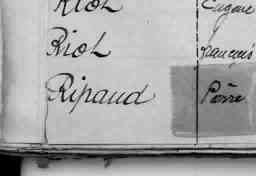 Riol Eugène
Riol François
Ripaud Pierre